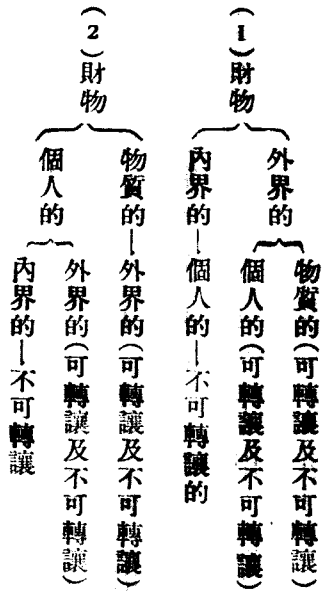 (1)財物
外界的
物質的(可轉讓及不可轉讓)
個人的(可轉讓及不可轉讓)
內界的—個人的—不可轉讓的
(2)財物
物質的—外界的(可轉讓及不可轉讓)
個人的
外界的(可轉讓及不可轉讓)
內界的—不可轉讓